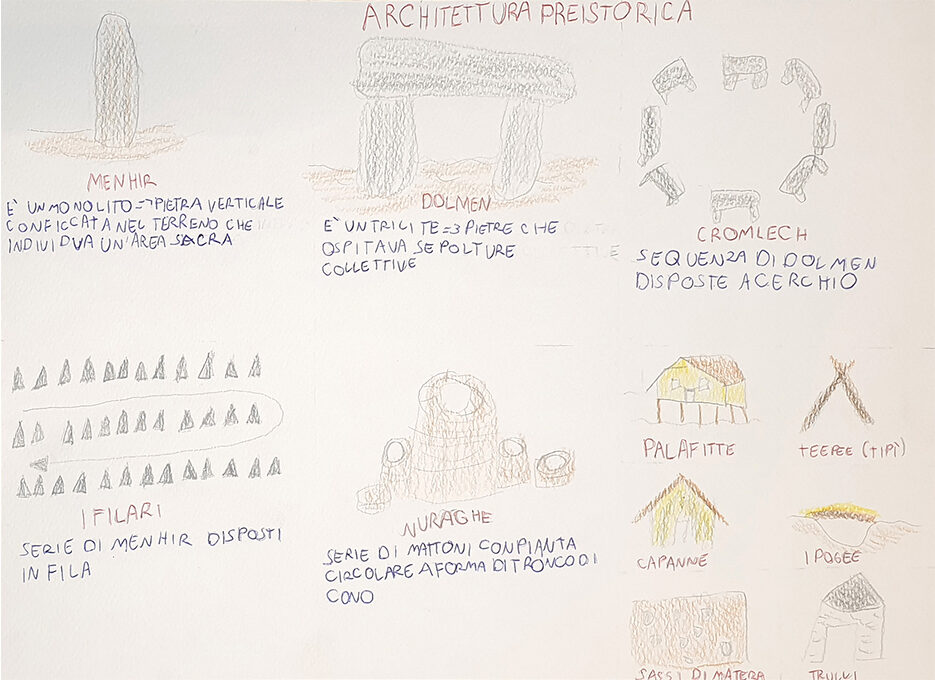 ARCHITETTURA PREISTORICA
MENHIR
E' UN MONOLITO => PIETRA VERTICALE
CONFICCATA NEL TERRENO CHE
INDIVIDVA UN'AREA SACRA
DOLMEN
E' UN TRILITE => 3 PIETRE CHE
OSPITAVA SEPOLTURE
COLLETTIVE
CROMLECH
SEQUENZA DI DOLMEN
DISPOSTE A CERCHIO
I FILARI
SERIE DI MENHIR DISPOSTI
IN FILA
NURAGHE
SERIE DI MATTONI CON PIANTA
CIRCOLARE A FORMA DI TRONCO DI
CONO
PALAFITTE
TEEPEE (TIPÌ)
CAPANNE
IPOGEE
SASSI DI MATERA
TRULLI